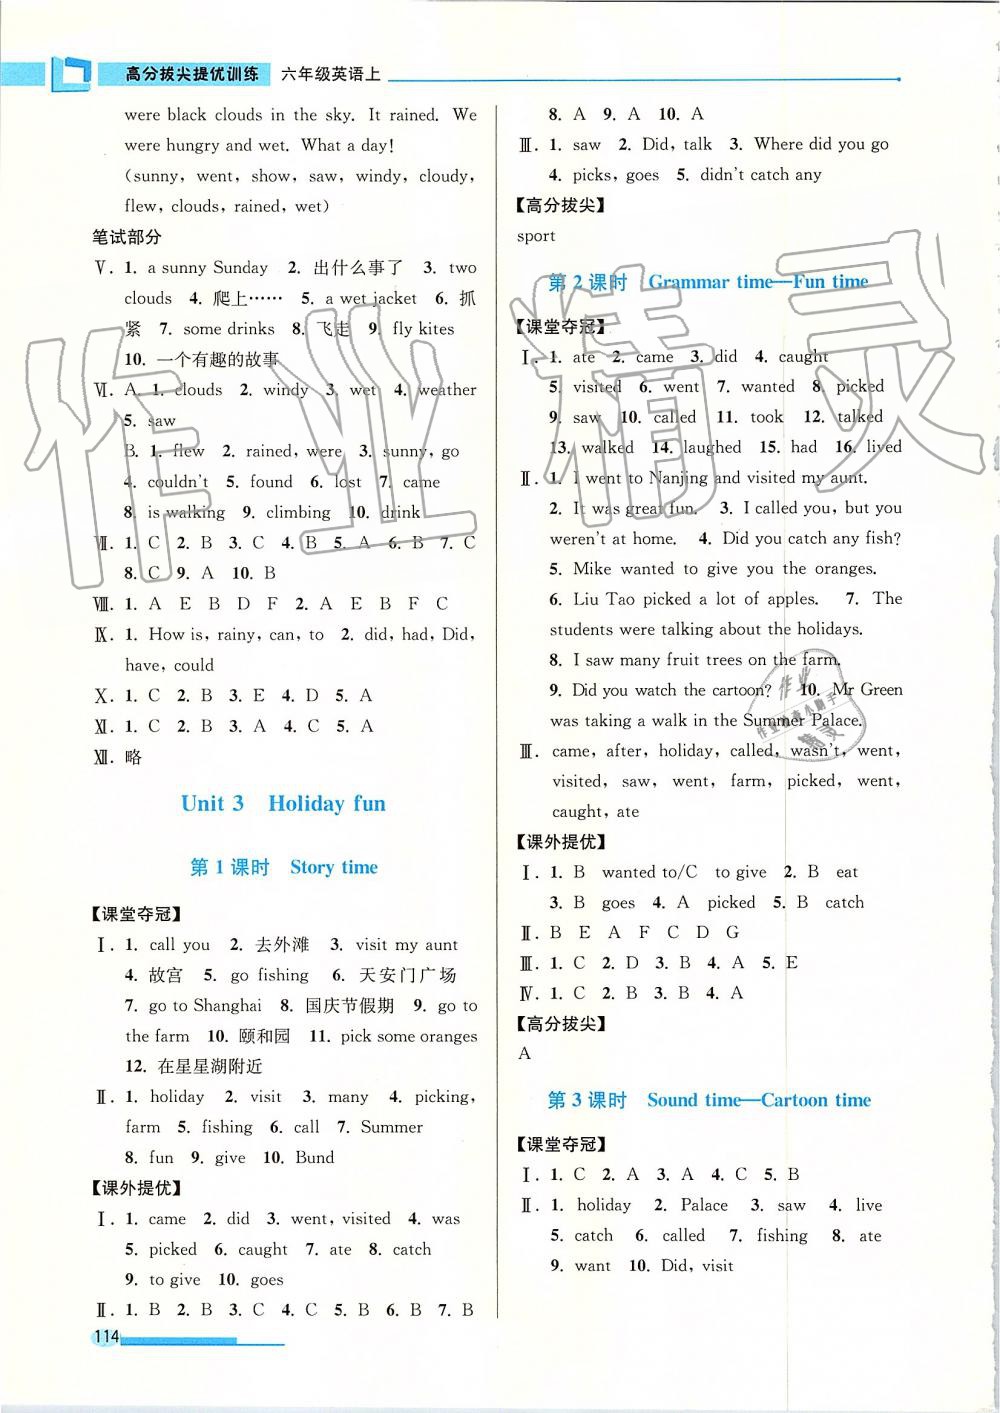 高分拔尖提优训练 六年级英语上
were black clouds in the sky. It rained. We
were hungry and wet. What a day!
(sunny, went, show, saw, windy, cloudy,
flew, clouds, rained, wet)
笔试部分
Ⅴ. 1. a sunny Sunday 2. 出什么事了 3. two
clouds 4. 爬上…… 5. a wet jacket 6. 抓
紧 7. some drinks 8. 飞走 9. fly kites
10. 一个有趣的故事
Ⅵ. A. 1. clouds 2. windy 3. wet 4. weather
5. saw
B. 1. flew 2. rained, were 3. sunny, go
4. couldn't 5. found 6. lost 7. came
8. is walking 9. climbing 10. drink
Ⅶ. 1. C 2. B 3. C 4. B 5. A 6. B 7. C
8. C 9. A 10. B
Ⅷ. 1. A E B D F 2. A E B F C
Ⅸ. 1. How is, rainy, can, to 2. did, had, Did,
have, could
Ⅹ. 1. C 2. B 3. E 4. D 5. A
Ⅺ. 1. C 2. B 3. A 4. C 5. A
Ⅻ. 略
Unit 3 Holiday fun
第 1 课时 Story time
【课堂夺冠】
Ⅰ. 1. call you 2. 去外滩 3. visit my aunt
4. 故宫 5. go fishing 6. 天安门广场
7. go to Shanghai 8. 国庆节假期 9. go to
the farm 10. 颐和园 11. pick some oranges
12. 在星星湖附近
Ⅱ. 1. holiday 2. visit 3. many 4. picking,
farm 5. fishing 6. call 7. Summer
8. fun 9. give 10. Bund
【课外提优】
Ⅰ. 1. came 2. did 3. went, visited 4. was
5. picked 6. caught 7. ate 8. catch
9. to give 10. goes
Ⅱ. 1. B 2. B 3. B 4. C 5. B 6. B 7. B
114
8. A 9. A 10. A
Ⅲ. 1. saw 2. Did, talk 3. Where did you go
4. picks, goes 5. didn't catch any
【高分拔尖】
sport
第 2 课时 Grammar time—Fun time
【课堂夺冠】
Ⅰ. 1. ate 2. came 3. did 4. caught
5. visited 6. went 7. wanted 8. picked
9. saw 10. called 11. took 12. talked
13. walked 14. laughed 15. had 16. lived
Ⅱ. 1. I went to Nanjing and visited my aunt.
2. It was great fun. 3. I called you, but you
weren't at home. 4. Did you catch any fish?
5. Mike wanted to give you the oranges.
6. Liu Tao picked a lot of apples. 7. The
students were talking about the holidays.
8. I saw many fruit trees on the farm.
9. Did you watch the cartoon? 10. Mr Green
was taking a walk in the Summer Palace.
Ⅲ. came, after, holiday, called, wasn't, went,
visited, saw, went, farm, picked, went,
caught, ate
【课外提优】
Ⅰ. 1. B wanted to/C to give 2. B eat
3. B goes 4. A picked 5. B catch
Ⅱ. B E A F C D G
Ⅲ. 1. C 2. D 3. B 4. A 5. E
Ⅳ. 1. C 2. B 3. B 4. A
【高分拔尖】
A
第 3 课时 Sound time—Cartoon time
【课堂夺冠】
Ⅰ. 1. C 2. A 3. A 4. C 5. B
Ⅱ. 1. holiday 2. Palace 3. saw 4. live
5. catch 6. called 7. fishing 8. ate
9. want 10. Did, visit
作业精灵